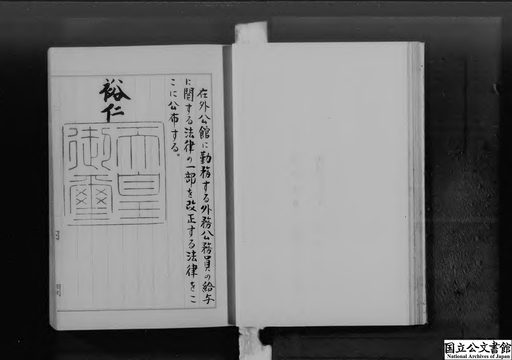 在外公館に勤務する外務公務員の給与
に関する法律の一部を改正する法律をこ
こに公布する。
裕仁
天皇
御璽
国立公文書館
National Archives of Japan